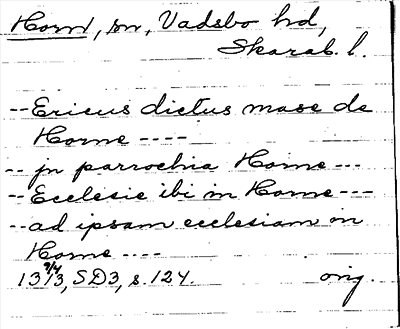 Horn, sn, Vadsbo hd,
Skarab. l.
-- Ericus dictus mase de
Horne ----
-- jn parrochia Horne ---
-- Ecclesie ibi in Horne ---
-- ad ipsam ecclesiam in
Horne ----
13 9/4 13, SD3, s. 124. orig.